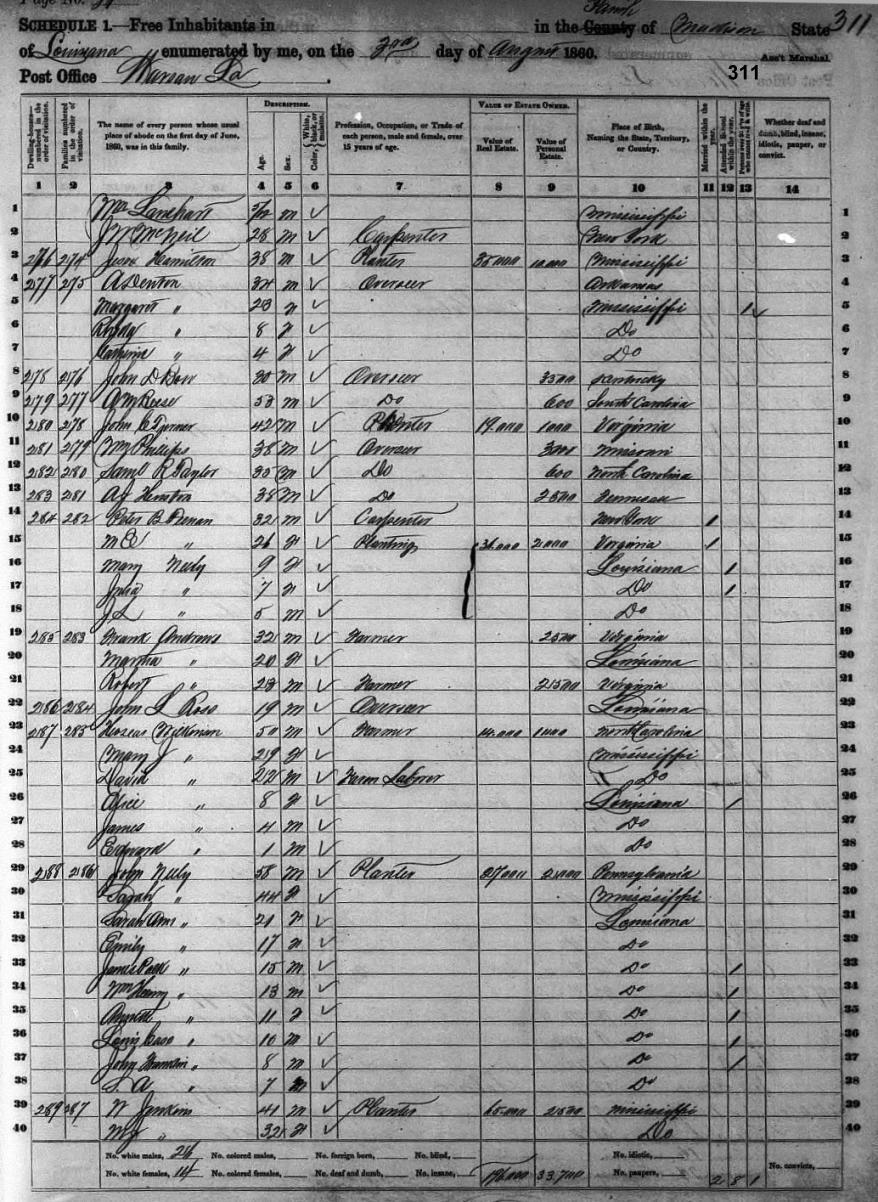 Page No.
SCHEDULE 1.—Free Inhabitants in in the County Parish of Madison State 311
of Louisiana enumerated by me, on the 3rd day of August 1860. Ass't Marshal.
Post Office Warsaw La 311
DESCRIPTION. VALUE OF ESTATE OWNED.
Dwelling-houses—numbered in the order of visitation. Families numbered in the order of visitation. The name of every person whose usual place of abode on the first day of June, 1860, was in this family. Age. Sex. Color, White, black, or mulatto. Profession, Occupation, or Trade of each person, male and female, over 15 years of age. Value of Real Estate. Value of Personal Estate. Place of Birth, Naming the State, Territory, or Country. Married within the year. Attended School within the year. Whether deaf and dumb, blind, insane, idiotic, pauper, or convict.
1 2 3 4 5 6 7 8 9 10 11 12 13 14
1 Wm m ✓ Mississippi 1
2 J M McNeil 28 m ✓ Carpenter New York 2
3 276 274 Hamilton 38 m ✓ Planter 35000 10000 Mississippi 3
4 277 275 A Denton 34 m ✓ Overseer Arkansas 4
5 Margaret " 23 f ✓ Mississippi 1 5
6 " 8 f ✓ Do 6
7 Catherine " 4 f ✓ Do 7
8 278 276 John D 30 m ✓ Overseer 3500 Kentucky 8
9 279 277 A M Reese 53 m ✓ Do 600 South Carolina 9
10 280 278 John C Turner 42 m ✓ Planter 19.000 1000 Virginia 10
11 281 279 Wm Phillips 38 m ✓ Overseer 3000 Missouri 11
12 282 280 Saml R Taylor 35 m ✓ Do 600 North Carolina 12
13 283 281 A J 38 m ✓ Do 2500 Tennessee 13
14 284 282 Peter B 32 m ✓ Carpenter New York 1 14
15 M E " 26 f ✓ Planting 36.000 2000 Virginia 1 15
16 Mary Neely 9 f ✓ Louisiana 1 16
17 Julia " 7 f ✓ Do 1 17
18 J L " 5 m ✓ Do 18
19 285 283 Frank Andrews 32 m ✓ Farmer 2500 Virginia 19
20 Martha " 20 f ✓ Louisiana 20
21 Robert " 23 m ✓ Farmer 2500 Virginia 21
22 286 284 John L Ross 19 m ✓ Overseer Louisiana 22
23 287 285 Hoseas Wilkinson 50 m ✓ Farmer 14.000 1000 North Carolina 23
24 Mary J " 29 f ✓ Mississippi 24
25 David " 22 m ✓ Farm Laborer Do 25
26 Alice " 8 f ✓ Louisiana 1 26
27 James " 4 m ✓ Do 27
28 Edward " 1 m ✓ Do 28
29 288 286 John Neely 58 m ✓ Planter 27000 2000 Pennsylvania 29
30 Sarah " 44 f ✓ Mississippi 30
31 Sarah Ann " 21 f ✓ Louisiana 31
32 Emily " 17 f ✓ Do 32
33 James Polk " 15 m ✓ Do 1 33
34 Wm Henry " 13 m ✓ Do 1 34
35 Annette " 11 f ✓ Do 1 35
36 Louis Cass " 10 m ✓ Do 1 36
37 John " 8 m ✓ Do 1 37
38 S. A " 7 m ✓ Do 38
39 289 287 Jenkins 41 m ✓ Planter 65.000 2500 Mississippi 39
40 M J " 32 f ✓ Do 40
No. white males, 26 No. colored males, No. foreign born, No. blind, No. idiotic,
No. white females, 14 No. colored females, No. deaf and dumb, No. insane, 196000 33,700 No. paupers, 2 8 1 No. convicts,